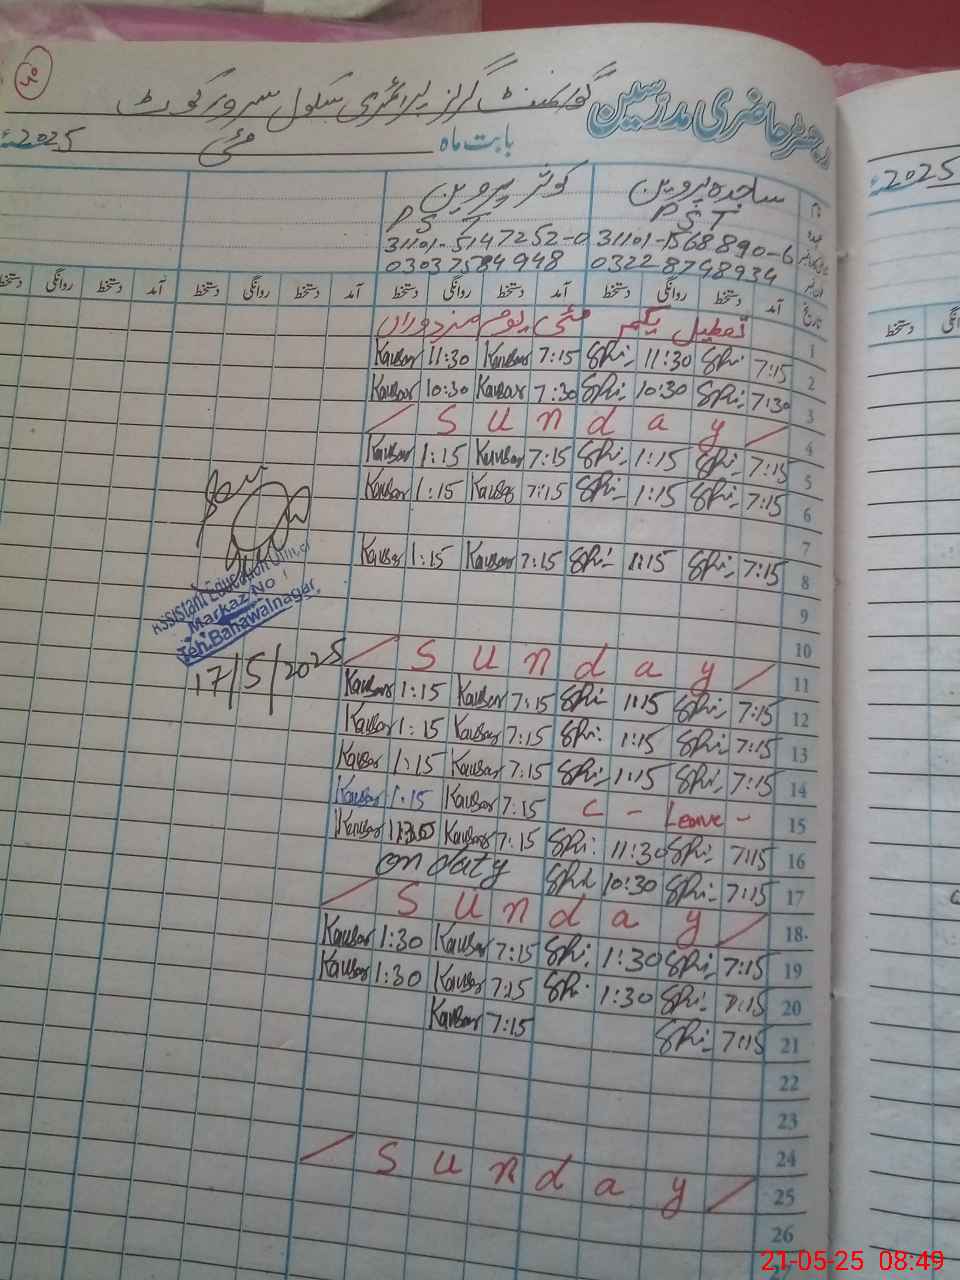 ۵۰
گورنمنٹ گرلز پرائمری سکول سرور کوٹ
رجسٹر حاضری مدرسین
بابت ماہ مئی 2025ء
2025ء
نام ساجدہ پروین کوثر پروین
عہدہ PST PST
31101-1568890-6 31101-5147252-0
0322-8748934 03037584948
تاریخ آمد دستخط روانگی دستخط آمد دستخط روانگی دستخط آمد دستخط روانگی دستخط آمد دستخط روانگی دستخط
1 تعطیل یکم مئی یوم مزدوراں
2 7:15 Shi 11:30 Shi 7:15 Kausar 11:30 Kausar
3 7:30 Shi 10:30 Shi 7:30 Kausar 10:30 Kausar
4 Sunday
5 7:15 Shi 1:15 Shi 7:15 Kausar 1:15 Kausar
6 7:15 Shi 1:15 Shi 7:15 Kausar 1:15 Kausar
7
8 7:15 Shi 1:15 Shi 7:15 Kausar 1:15 Kausar
9
10
11 Sunday
12 7:15 Shi 1:15 Shi 7:15 Kausar 1:15 Kausar
13 7:15 Shi 1:15 Shi 7:15 Kausar 1:15 Kausar
14 7:15 Shi 1:15 Shi 7:15 Kausar 1:15 Kausar
15 C - Leave - 7:15 Kausar 1:15 Kausar
16 7:15 Shi 11:30 Shi 7:15 Kausar Kausar
17 7:15 Shi 10:30 Shi on duty
18 Sunday
19 7:15 Shi 1:30 Shi 7:15 Kausar 1:30 Kausar
20 7:15 Shi 1:30 Shi 7:15 Kausar 1:30 Kausar
21 7:15 Shi 7:15 Kausar
22
23
24
25 Sunday
26
27
Assistant Education Officer
Markaz No 1
Teh. Bahawalnagar
17/5/2025
دستخط
21-05-25 08:49